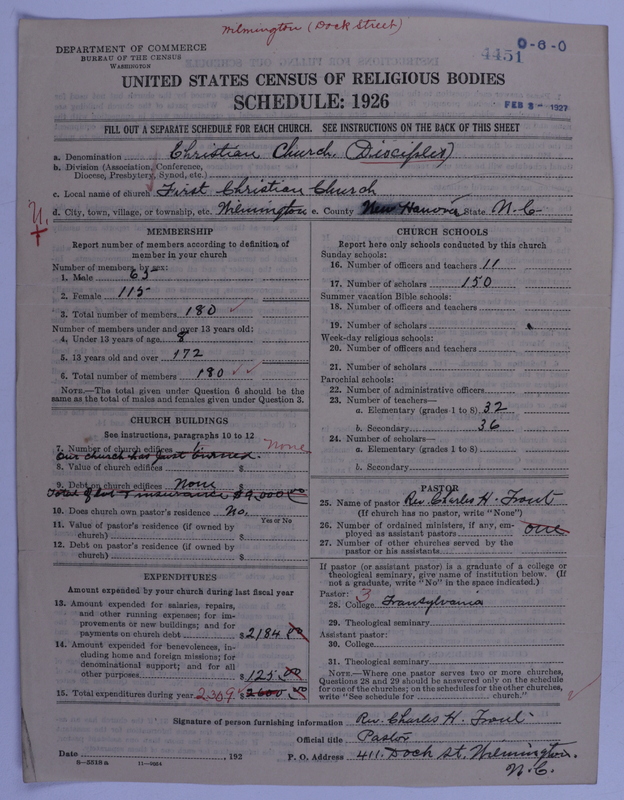 Wilmington (Dock Street)
DEPARTMENT OF COMMERCE
BUREAU OF THE CENSUS
WASHINGTON
4451
0-6-0
UNITED STATES CENSUS OF RELIGIOUS BODIES
SCHEDULE: 1926
FEB 3- 1927
FILL OUT A SEPARATE SCHEDULE FOR EACH CHURCH. SEE INSTRUCTIONS ON THE BACK OF THIS SHEET
a. Denomination Christian Church (Disciples)
b. Division (Association, Conference, Diocese, Presbytery, Synod, etc.)
c. Local name of church First Christian Church
d. City, town, village, or township, etc. Wilmington e. County New Hanover State N.C
MEMBERSHIP
Report number of members according to definition of member in your church
Number of members by sex:
1. Male 65
2. Female 115
3. Total number of members 180
Number of members under and over 13 years old:
4. Under 13 years of age 8
5. 13 years old and over 172
6. Total number of members 180
NOTE.—The total given under Question 6 should be the same as the total of males and females given under Question 3.
CHURCH BUILDINGS
See instructions, paragraphs 10 to 12
7. Number of church edifices None
Our church has just burned.
8. Value of church edifices $
9. Debt on church edifices None
Total of lot & insurance $9,000.00
10. Does church own pastor's residence No.
Yes or No
11. Value of pastor's residence (if owned by church) $
12. Debt on pastor's residence (if owned by church) $
EXPENDITURES
Amount expended by your church during last fiscal year
13. Amount expended for salaries, repairs, and other running expenses; for improvements or new buildings; and for payments on church debt $2184.00
14. Amount expended for benevolences, including home and foreign missions; for denominational support; and for all other purposes $125.00
15. Total expenditures during year 2309 $2600.00
CHURCH SCHOOLS
Report here only schools conducted by this church
Sunday schools:
16. Number of officers and teachers 11
17. Number of scholars 150
Summer vacation Bible schools:
18. Number of officers and teachers
19. Number of scholars
Week-day religious schools:
20. Number of officers and teachers
21. Number of scholars
Parochial schools:
22. Number of administrative officers
23. Number of teachers—
a. Elementary (grades 1 to 8) 32
b. Secondary 36
24. Number of scholars—
a. Elementary (grades 1 to 8)
b. Secondary
PASTOR
25. Name of pastor Rev. Charles H. Trout
(If church has no pastor, write "None")
26. Number of ordained ministers, if any, employed as assistant pastors one
27. Number of other churches served by the pastor or his assistants
If pastor (or assistant pastor) is a graduate of a college or theological seminary, give name of institution below. (If not a graduate, write "No" in the space indicated.)
Pastor: 3
28. College Transylvania
29. Theological seminary
Assistant pastor:
30. College
31. Theological seminary
NOTE.—Where one pastor serves two or more churches, Questions 28 and 29 should be answered only on the schedule for one of the churches; on the schedules for the other churches, write "See schedule for church."
Signature of person furnishing information Rev. Charles H. Trout
Official title Pastor
Date , 192
P. O. Address 411. Dock St. Wilmington. N.C.
8-5518a
11-9084